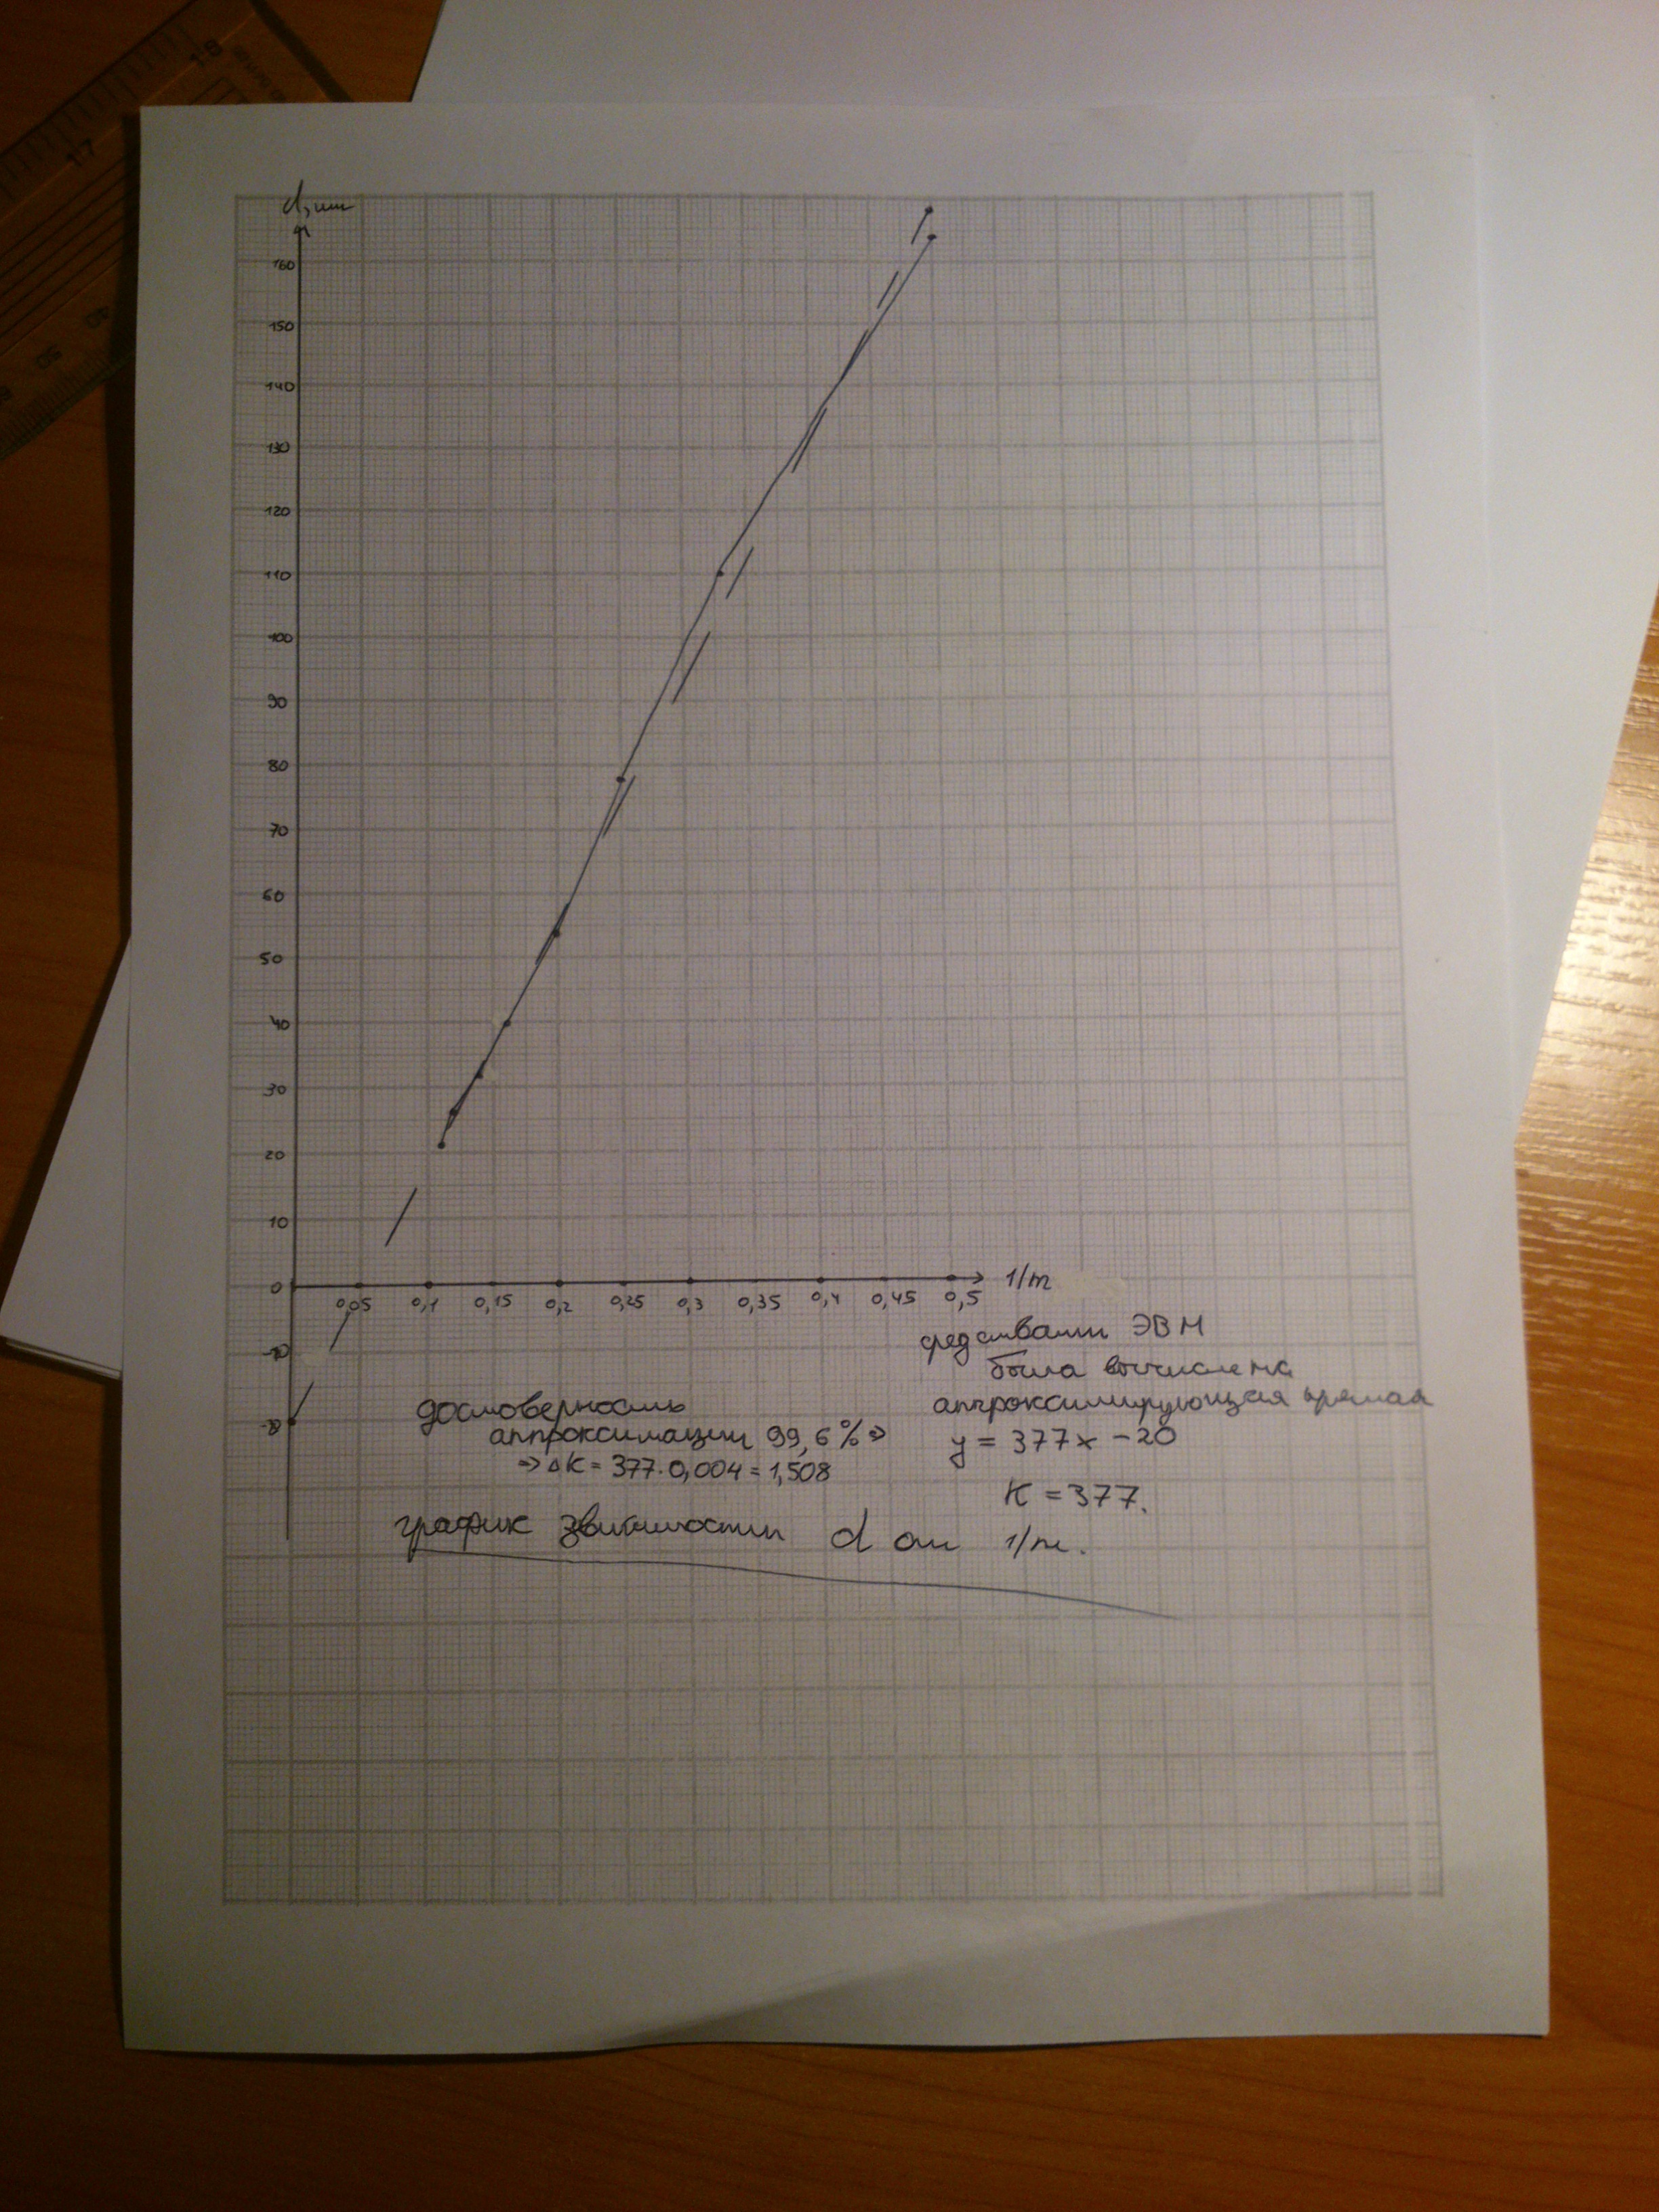 d, мм
160
150
140
130
120
110
100
90
80
70
60
50
40
30
20
10
0
0,05 0,1 0,15 0,2 0,25 0,3 0,35 0,4 0,45 0,5 1/m
-10
средствами ЭВМ
была вычислена
аппроксимирующая прямая
y = 377x - 20
K = 377.
достоверность
аппроксимации 99,6% ⇒
⇒ ΔK = 377·0,004 = 1,508
график звисимости d от 1/m.
17
18